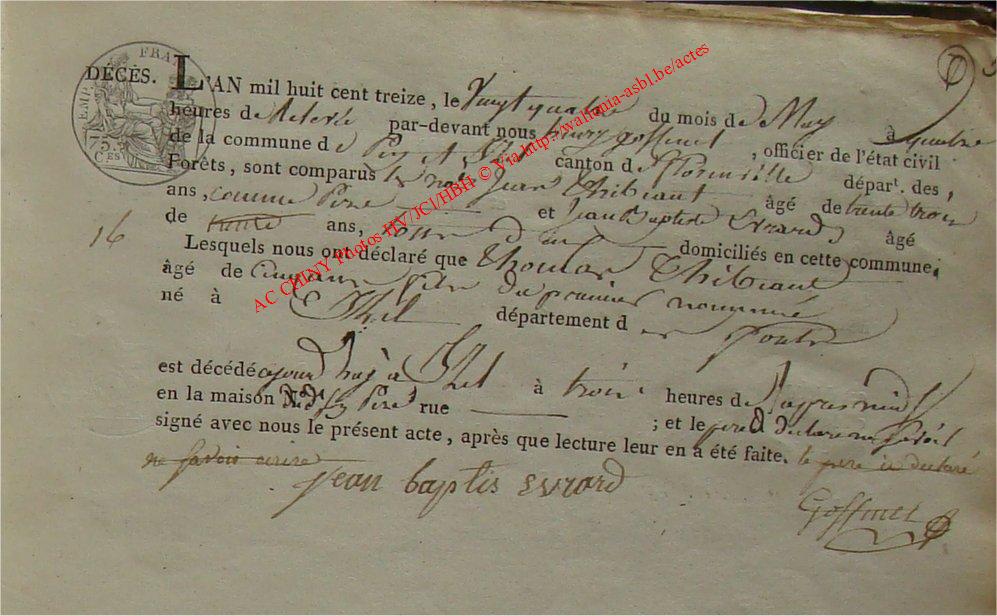 DÉCÈS. L'AN mil huit cent treize, le Vingt quatre du mois de May à quatre
heures de Relevée par-devant nous henry goffinet, officier de l'état civil
de la commune de Pin et Izel canton de florenville départ. des
Forêts, sont comparus Jean Thibiant âgé de trente trois
ans, comme Pere et Jean Baptiste Evrard âgé
de ans, domiciliés en cette commune;
16
Lesquels nous ont déclaré que Thomas Thibiant
âgé de cinq ans fils du premier nommé
né à Izel département des forêts
est décédé cejourd'huy à Izel à trois heures de l'apres midi
en la maison N.º de son Pere rue ; et le
signé avec nous le présent acte, après que lecture leur en a été faite. le pere a declaré
ne savoir ecrire
jean baptis evrard
Goffinet
FRA
EMP
75
C.ES
AC CHINY Photos HV/JCI/HBH © Via http://wallonia-asbl.be/actes